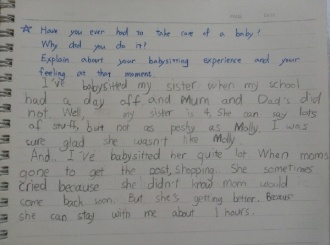 ☆ Have you ever had to take care of a baby?
Why did you do it?
Explain about your babysitting experience and your
feeling at that moment.
I've babysitted my sister when my school
had a day off and Mum and Dad's did
not. Well, my sister is 4, she can say lots
of stuff, but not as pesky as Molly. I was
sure glad she wasn't like Molly.
And.. I've babysitted her quite lot. When moms
gone to get the post, stopping. She sometimes
cried because she didn't know mom would
come back soon. But she's getting better. Because
she can stay with me about 1 hours.